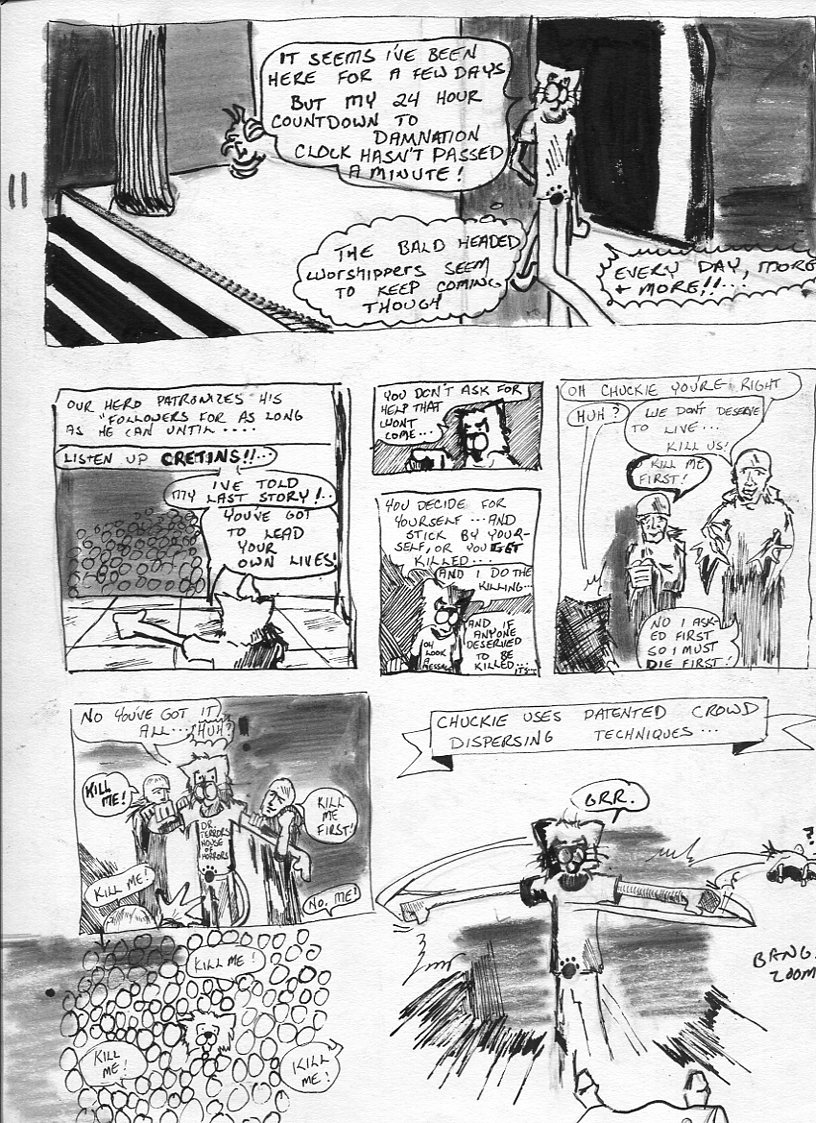 11
IT SEEMS I'VE BEEN
HERE FOR A FEW DAYS
BUT MY 24 HOUR
COUNTDOWN TO
DAMNATION
CLOCK HASN'T PASSED
A MINUTE!
THE BALD HEADED
WORSHIPPERS SEEM
TO KEEP COMING
THOUGH
EVERY DAY, MORE
+ MORE!!...
OUR HERO PATRONIZES HIS
"FOLLOWERS FOR AS LONG
AS HE CAN UNTIL ....
LISTEN UP CRETINS!!...
I'VE TOLD
MY LAST STORY!..
YOU'VE GOT
TO LEAD
YOUR
OWN LIVES!
YOU DON'T ASK FOR
HELP THAT
WONT
COME...
YOU DECIDE FOR
YOURSELF ...AND
STICK BY YOUR-
SELF, OR YOU GET
KILLED...
AND I DO THE
KILLING...
AND IF
ANYONE
DESERVED
TO BE
KILLED...
IT'S...
OH
LOOK
A
MESSAGE
OH CHUCKIE YOU'RE RIGHT
HUH?
WE DON'T DESERVE
TO LIVE...
KILL US!
KILL ME
FIRST!
NO I ASK-
ED FIRST
SO I MUST
DIE FIRST!
NO YOU'VE GOT IT
ALL...
HUH?
KILL
ME!
KILL
ME
FIRST!
DR.
TERRORS
HOUSE
OF
HORRORS
KILL ME!
NO, ME!
KILL ME!
KILL
ME!
KILL
ME!
CHUCKIE USES PATENTED CROWD
DISPERSING TECHNIQUES...
GRR.
?
BANG.
ZOOM